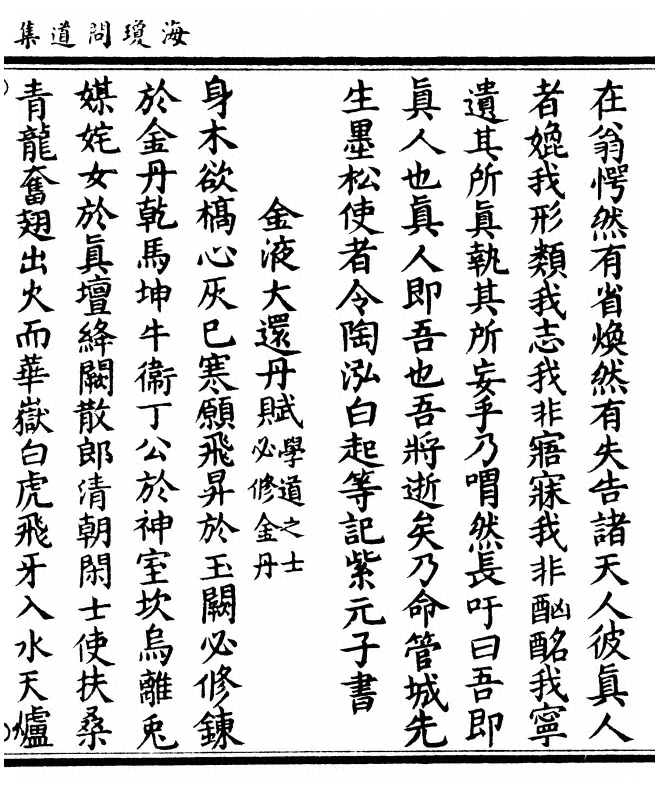 海瓊問道集
在翁愕然有省煥然有失告諸天人彼眞人
者媲我形類我志我非寤寐我非酗酩我寧
遺其所眞執其所妄乎乃喟然長吁曰吾即
眞人也眞人即吾也吾將逝矣乃命管城先
生墨松使者令陶泓白起等記紫元子書
金液大還丹賦學道之士必修金丹
身木欲槁心灰已寒願飛昇於玉闕必修鍊
於金丹乾馬坤牛衞丁公於神室坎烏離兎
媒姹女於眞壇絳闕散郎清朝閑士使扶桑
青龍奮翅出火而華嶽白虎飛牙入水天爐